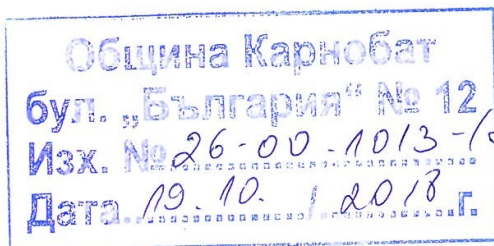 Община Карнобат
бул. „България“ № 12
Изх. № 26-00-1013-
Дата 19.10. / 2018 г.